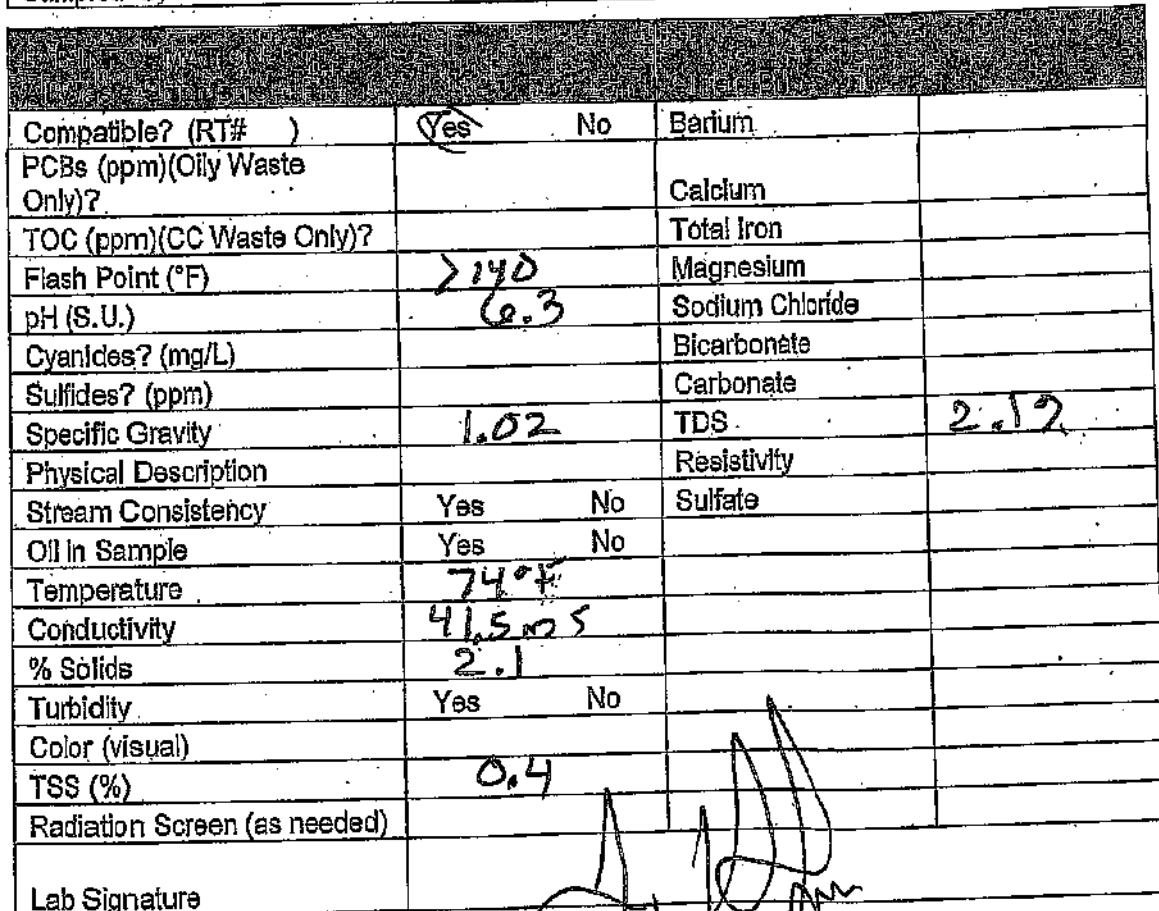 LAB INFORMATION
Compatible? (RT# ) Yes No Barium
PCBs (ppm)(Oily Waste
Only)? Calcium
TOC (ppm)(CC Waste Only)? Total Iron
Flash Point (°F) >140 Magnesium
pH (S.U.) 6.3 Sodium Chloride
Cyanides? (mg/L) Bicarbonate
Sulfides? (ppm) Carbonate
Specific Gravity 1.02 TDS 2.12
Physical Description Resistivity
Stream Consistency Yes No Sulfate
Oil in Sample Yes No
Temperature 74°F
Conductivity 41.5 ms
% Solids 2.1
Turbidity Yes No
Color (visual)
TSS (%) 0.4
Radiation Screen (as needed)
Lab Signature